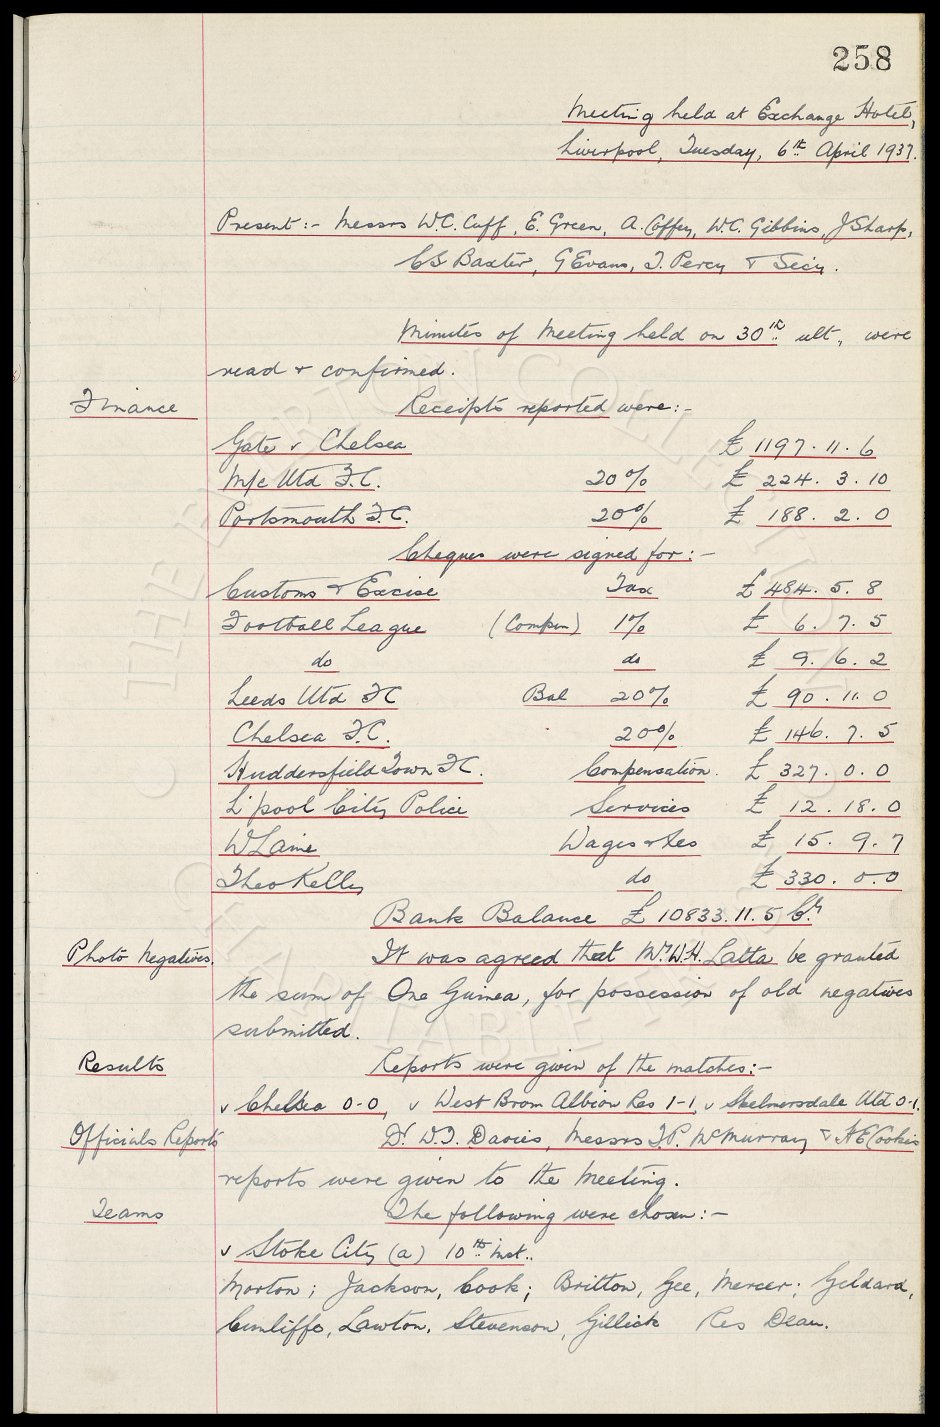 258
Meeting held at Exchange Hotel,
Liverpool, Tuesday, 6th April 1937.
Present:- Messrs W.C. Cuff, E. Green, A. Coffey, W.C. Gibbins, J Sharp,
C S Baxter, G Evans, T. Percy & Secy.
Minutes of Meeting held on 30th ult, were
read & confirmed.
Finance Receipts reported were:-
Gate v Chelsea £ 1197. 11. 6
M/c Utd F.C. 20% £ 224. 3. 10
Portsmouth F.C. 20% £ 188. 2. 0
Cheques were signed for:-
Customs & Excise Tax £ 484. 5. 8
Football League (Compen) 1% £ 6. 7. 5
do do £ 9. 6. 2
Leeds Utd FC Bal 20% £ 90. 11. 0
Chelsea F.C. 20% £ 146. 7. 5
Huddersfield Town FC. Compensation. £ 327. 0. 0
L'pool City Police Services £ 12. 18. 0
W Laine Wages &c £ 15. 9. 7
Theo Kelly do £ 330. 0. 0
Bank Balance £ 10833. 11. 5 Cr
Photo Negatives. It was agreed that Mr W.H. Latta be granted
the sum of One Guinea, for possession of old negatives
submitted.
Results Reports were given of the matches:-
v Chelsea 0-0, v West Brom Albion Res 1-1, v Skelmersdale Utd 0-1.
Officials Reports Dr D.T. Davies, Messrs T.P. McMurray & H E Cookes
reports were given to the Meeting.
Teams The following were chosen:-
v Stoke City (a) 10th inst.
Morton; Jackson, Cook; Britton, Gee, Mercer; Geldard,
Cunliffe, Lawton, Stevenson, Gillick Res Dean.
© THE EVERTON COLLECTION
CHARITABLE TRUST